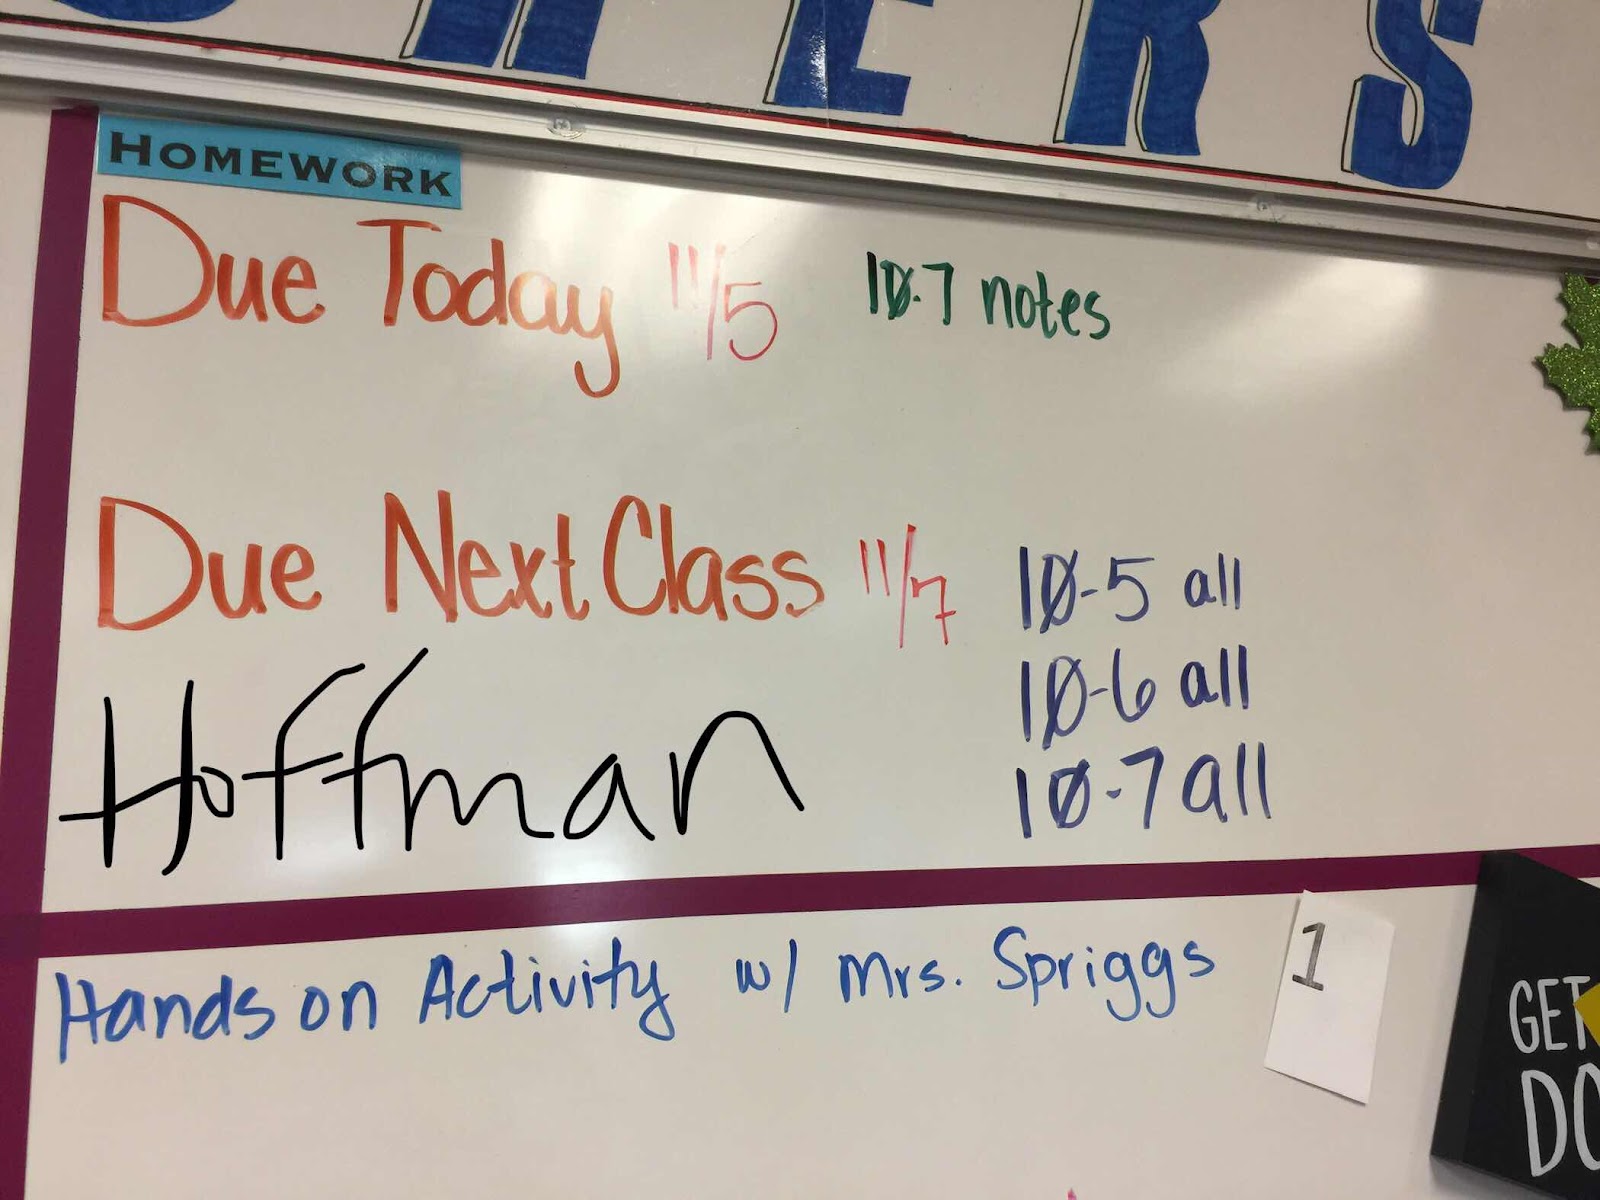 HERS
HOMEWORK
Due Today 11/5 10-7 notes
Due Next Class 11/7 10-5 all
10-6 all
Hoffman 10-7 all
Hands on Activity w/ Mrs. Spriggs 1
GET
DO